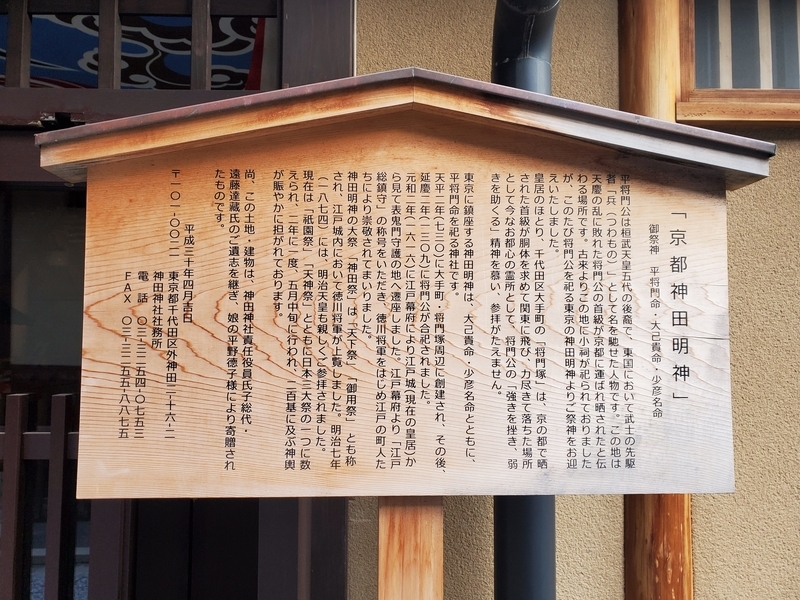 「京都神田明神」
御祭神　平将門命・大己貴命・少彦名命
平将門公は桓武天皇五代の後裔で、東国において武士の先駆
者「兵（つわもの）」として名を馳せた人物です。この地は
天慶の乱に敗れた将門公の首級が京都に運ばれ晒されたと伝
わる場所です。古来よりこの地に小祠が祀られておりました
が、このたび将門公を祀る東京の神田明神よりご祭神をお迎
えいたしました。
皇居のほとり、千代田区大手町の「将門塚」は、京の都で晒
された首級が胴体を求めて関東に飛び、力尽きて落ちた場所
として今なお都心の霊所として、将門公の「強きを挫き、弱
きを助くる」精神を慕い、参拝がたえません。
東京に鎮座する神田明神は、大己貴命・少彦名命とともに、
平将門命を祀る神社です。
天平二年（七三〇）に大手町・将門塚周辺に創建され、その後、
延慶二年（一三〇九）に将門公が合祀されました。
元和二年（一六一六）に江戸幕府により江戸城（現在の皇居）か
ら見て表鬼門守護の地へ遷座しました。江戸幕府より「江戸
総鎮守」の称号をいただき、徳川将軍をはじめ江戸の町人た
ちにより崇敬されてまいりました。
神田明神の大祭「神田祭」は「天下祭」「御用祭」とも称
され、江戸城内において徳川将軍が上覧しました。明治七年
（一八七四）には、明治天皇も親しくご参拝されました。
現在は「祇園祭」「天神祭」とともに日本三大祭の一つに数
えられ、二年に一度、五月中旬に行われ、二百基に及ぶ神輿
が賑やかに担がれております。
尚、この土地・建物は、神田神社責任役員氏子総代・
遠藤達藏氏のご遺志を継ぎ、娘の平野徳子様により寄贈され
たものです。
平成三十年四月吉日
〒一〇一-〇〇二一　東京都千代田区外神田二-十六-二
神田神社社務所
電　話　〇三-三二五四-〇七五三
ＦＡＸ　〇三-三二五五-八八七五